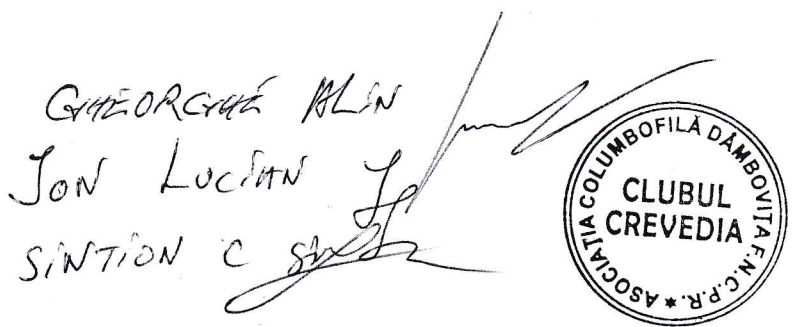 GHEORGHE ALIN
ION LUCIAN
SINTION C
ASOCIAȚIA COLUMBOFILĂ DÂMBOVIȚA F.N.C.P.R. *
CLUBUL
CREVEDIA